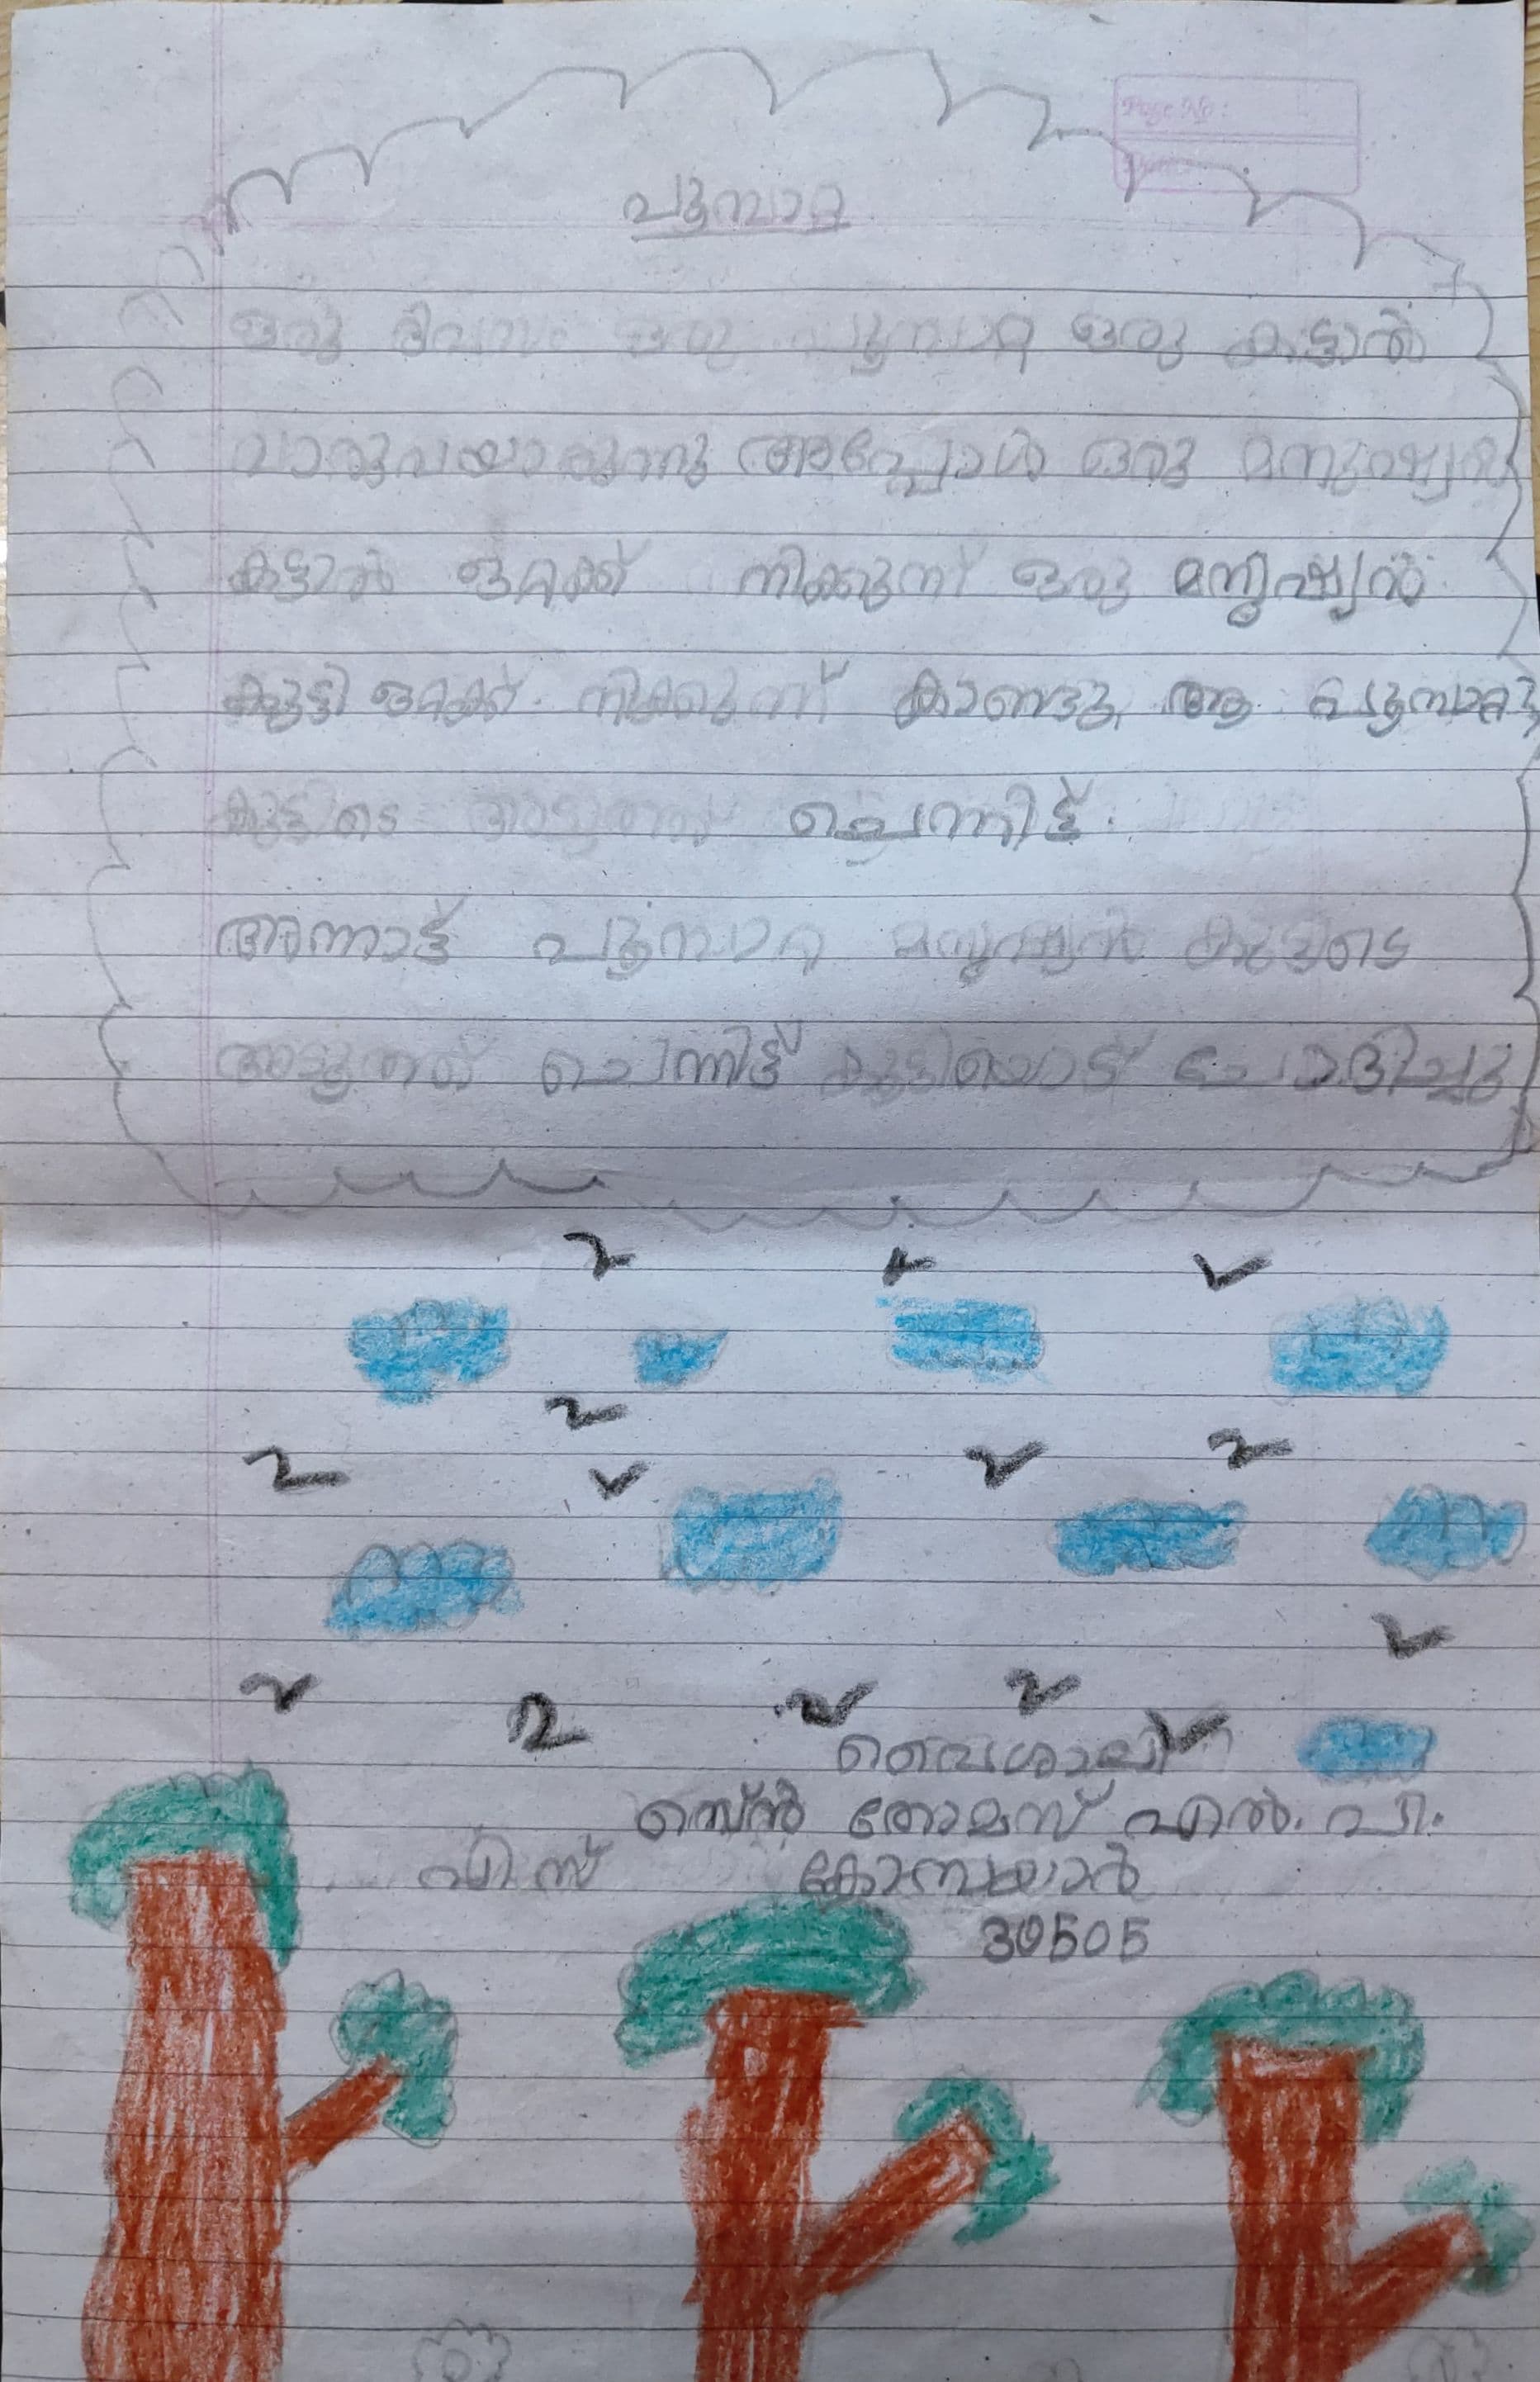 പൂമ്പാറ്റ
Page No:
Date:
ഒരു ദിവസം ഒരു പൂമ്പാറ്റ ഒരു കട്ടാൽ
വാരുവയാരുന്നു അപ്പോൾ ഒരു
കട്ടാൽ ഒറ്റക്ക് നിക്കുന്ന് ഒരു മനുഷ്യൻ
കുട്ടി ഒറ്റക്ക് നിക്കുന്ന് കാണ്ടു, ആ പൂമ്പാറ്റ
കുട്ടിടെ അടുത്തത് ചെന്നിട്ട്.
അന്നാട്ട് പൂമ്പാറ്റ മനുഷ്യൻ കുട്ടിടെ
അടുത്തത് ചെന്നിട്ട് കുട്ടിയൊട് ചോദിച്ചു
വൈശാലി
സെൻ തോമസ് എൽ. പി.
എസ് കോമ്പയാർ
30505